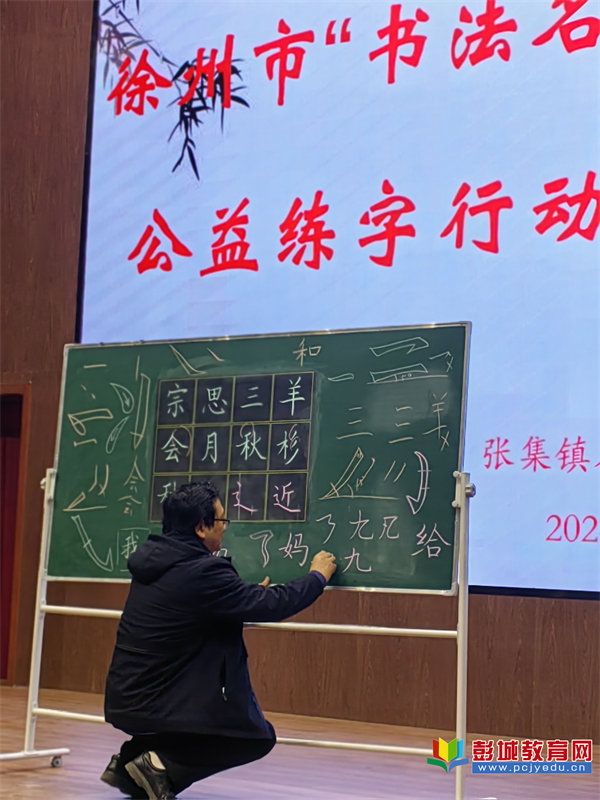 徐州市“书法名
公益练字行动
张集镇
202
和
宗思三羊
会月秋杉
近
三三羊
会
我
了妈
了九
九
给
彭城教育网
www.pcjyedu.cn